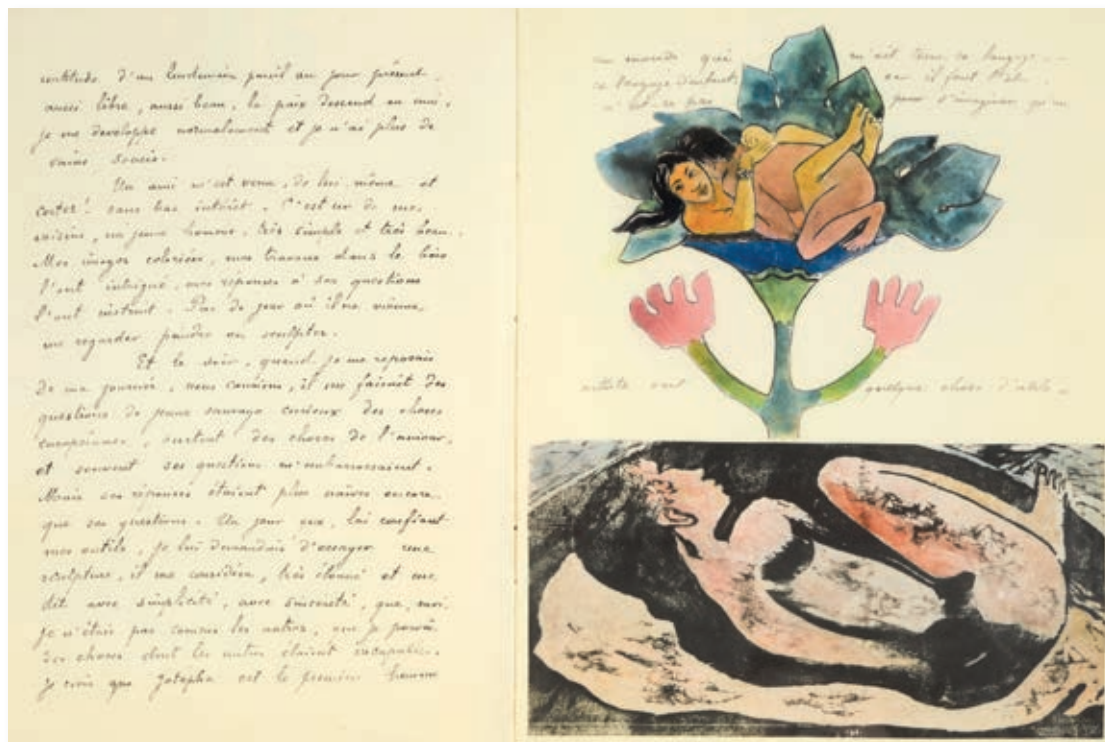 certitude d'un lendemain pareil au jour présent,
aussi libre, aussi beau, la paix descend en moi,
je me développe normalement et je n'ai plus de
vains soucis.
Un ami m'est venu, de lui même et
certes! sans bas intérêt. C'est un de mes
voisins, un jeune homme, très simple et très beau.
Mes images coloriées, mes travaux dans le bois
l'ont intrigué, mes réponses à ses questions
l'ont instruit. Pas de jour où il ne vienne
me regarder peindre ou sculpter.
Et le soir, quand je me reposais
De ma journée, nous causions, il me faisait des
questions de jeune sauvage curieux des choses
européennes, surtout des choses de l'amour,
et souvent ses questions m'embarrassaient.
Mais ses réponses étaient plus naïves encore
que ses questions. Un jour que, lui confiant
mes outils, je lui demandais d'essayer une
sculpture, il me considéra, très étonné et me
dit avec simplicité, avec sincérité, que, moi,
je n'étais pas comme les autres, que je pouvais
des choses dont les autres étaient incapables.
Je crois que Jotépha est le premier homme
au monde qui m'ait tenu ce langage —
ce langage d'enfant, car il faut l'être
n'est-ce pas pour s'imaginer qu'un
artiste soit quelque chose d'utile —